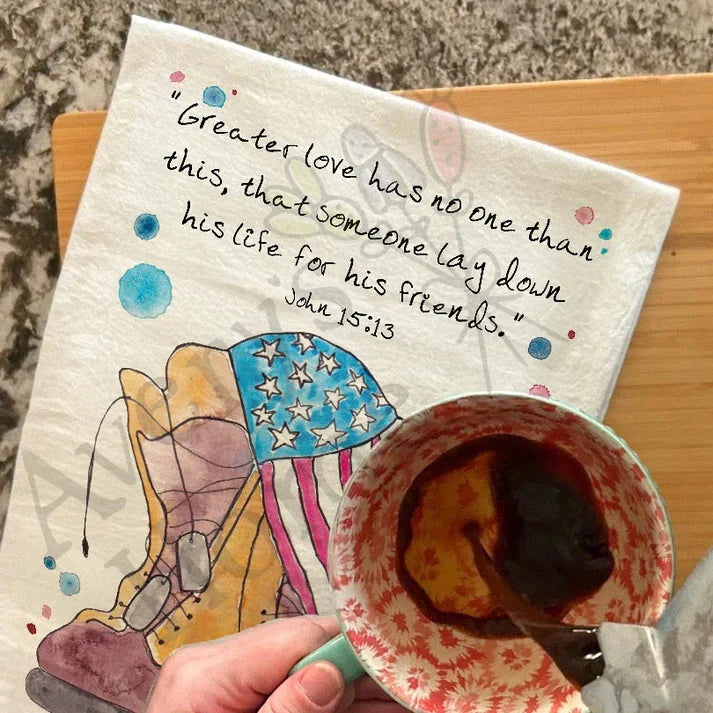 "Greater love has no one than
this, that someone lay down
his life for his friends."
John 15:13
Avery's
Home